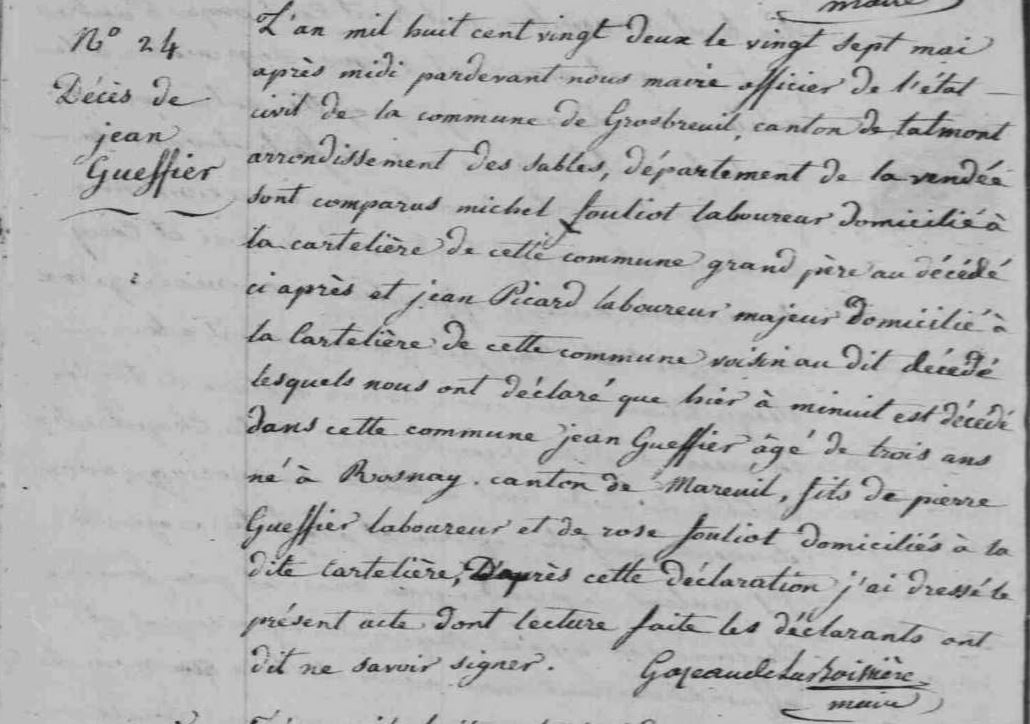 maire
N° 24
Décès de
jean
Gueffier
L'an mil huit cent vingt deux le vingt sept mai
après midi pardevant nous maire officier de l'état
civil de la commune de Grosbreuil, canton de talmont
arrondissement des sables, département de la vendée
sont comparus michel fouliot laboureur domicilié à
la cartelière de cette commune grand père au décédé
ci après et jean Picard laboureur majeur domicilié à
la Cartelière de cette commune voisin au dit décédé
lesquels nous ont déclaré que hier à minuit est décédé
dans cette commune jean Gueffier âgé de trois ans
né à Rosnay. canton de Mareuil, fils de pierre
Gueffier laboureur et de rose fouliot domiciliés à la
dite cartelière, D'après cette déclaration j'ai dressé le
présent acte dont lecture faite les déclarants ont
dit ne savoir signer.
maire